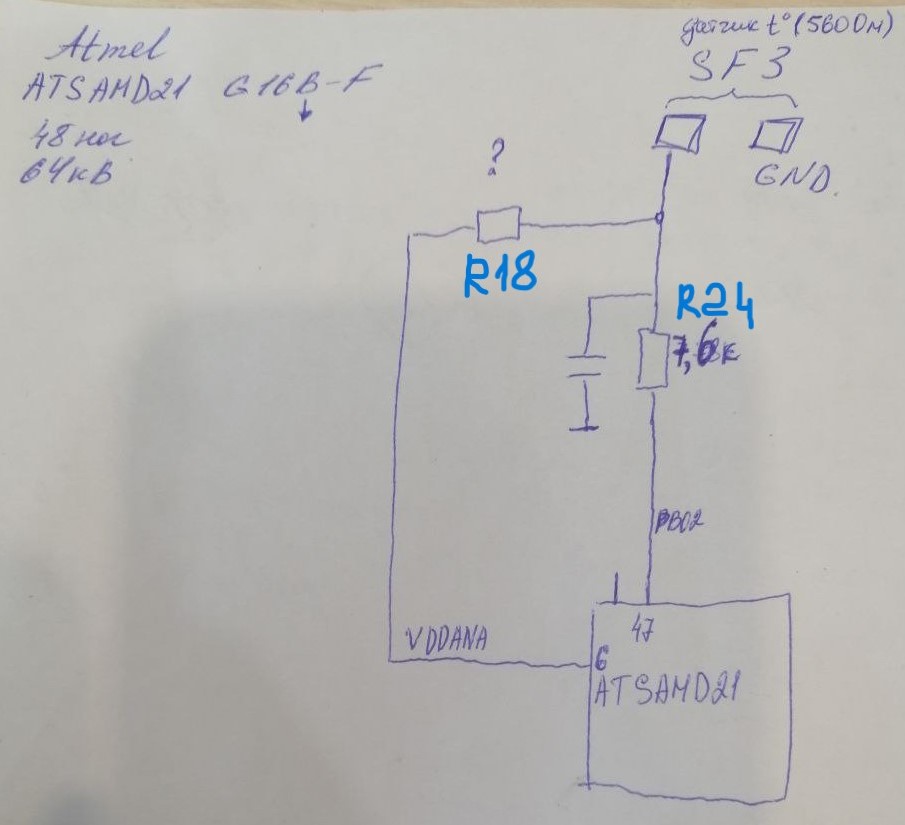 Atmel
ATSAMD21 G16B-F
48 ног
64кВ
датчик t° (560 Ом)
SF3
GND.
?
R18
R24
7,6к
PB02
VDDANA
47
6
ATSAMD21